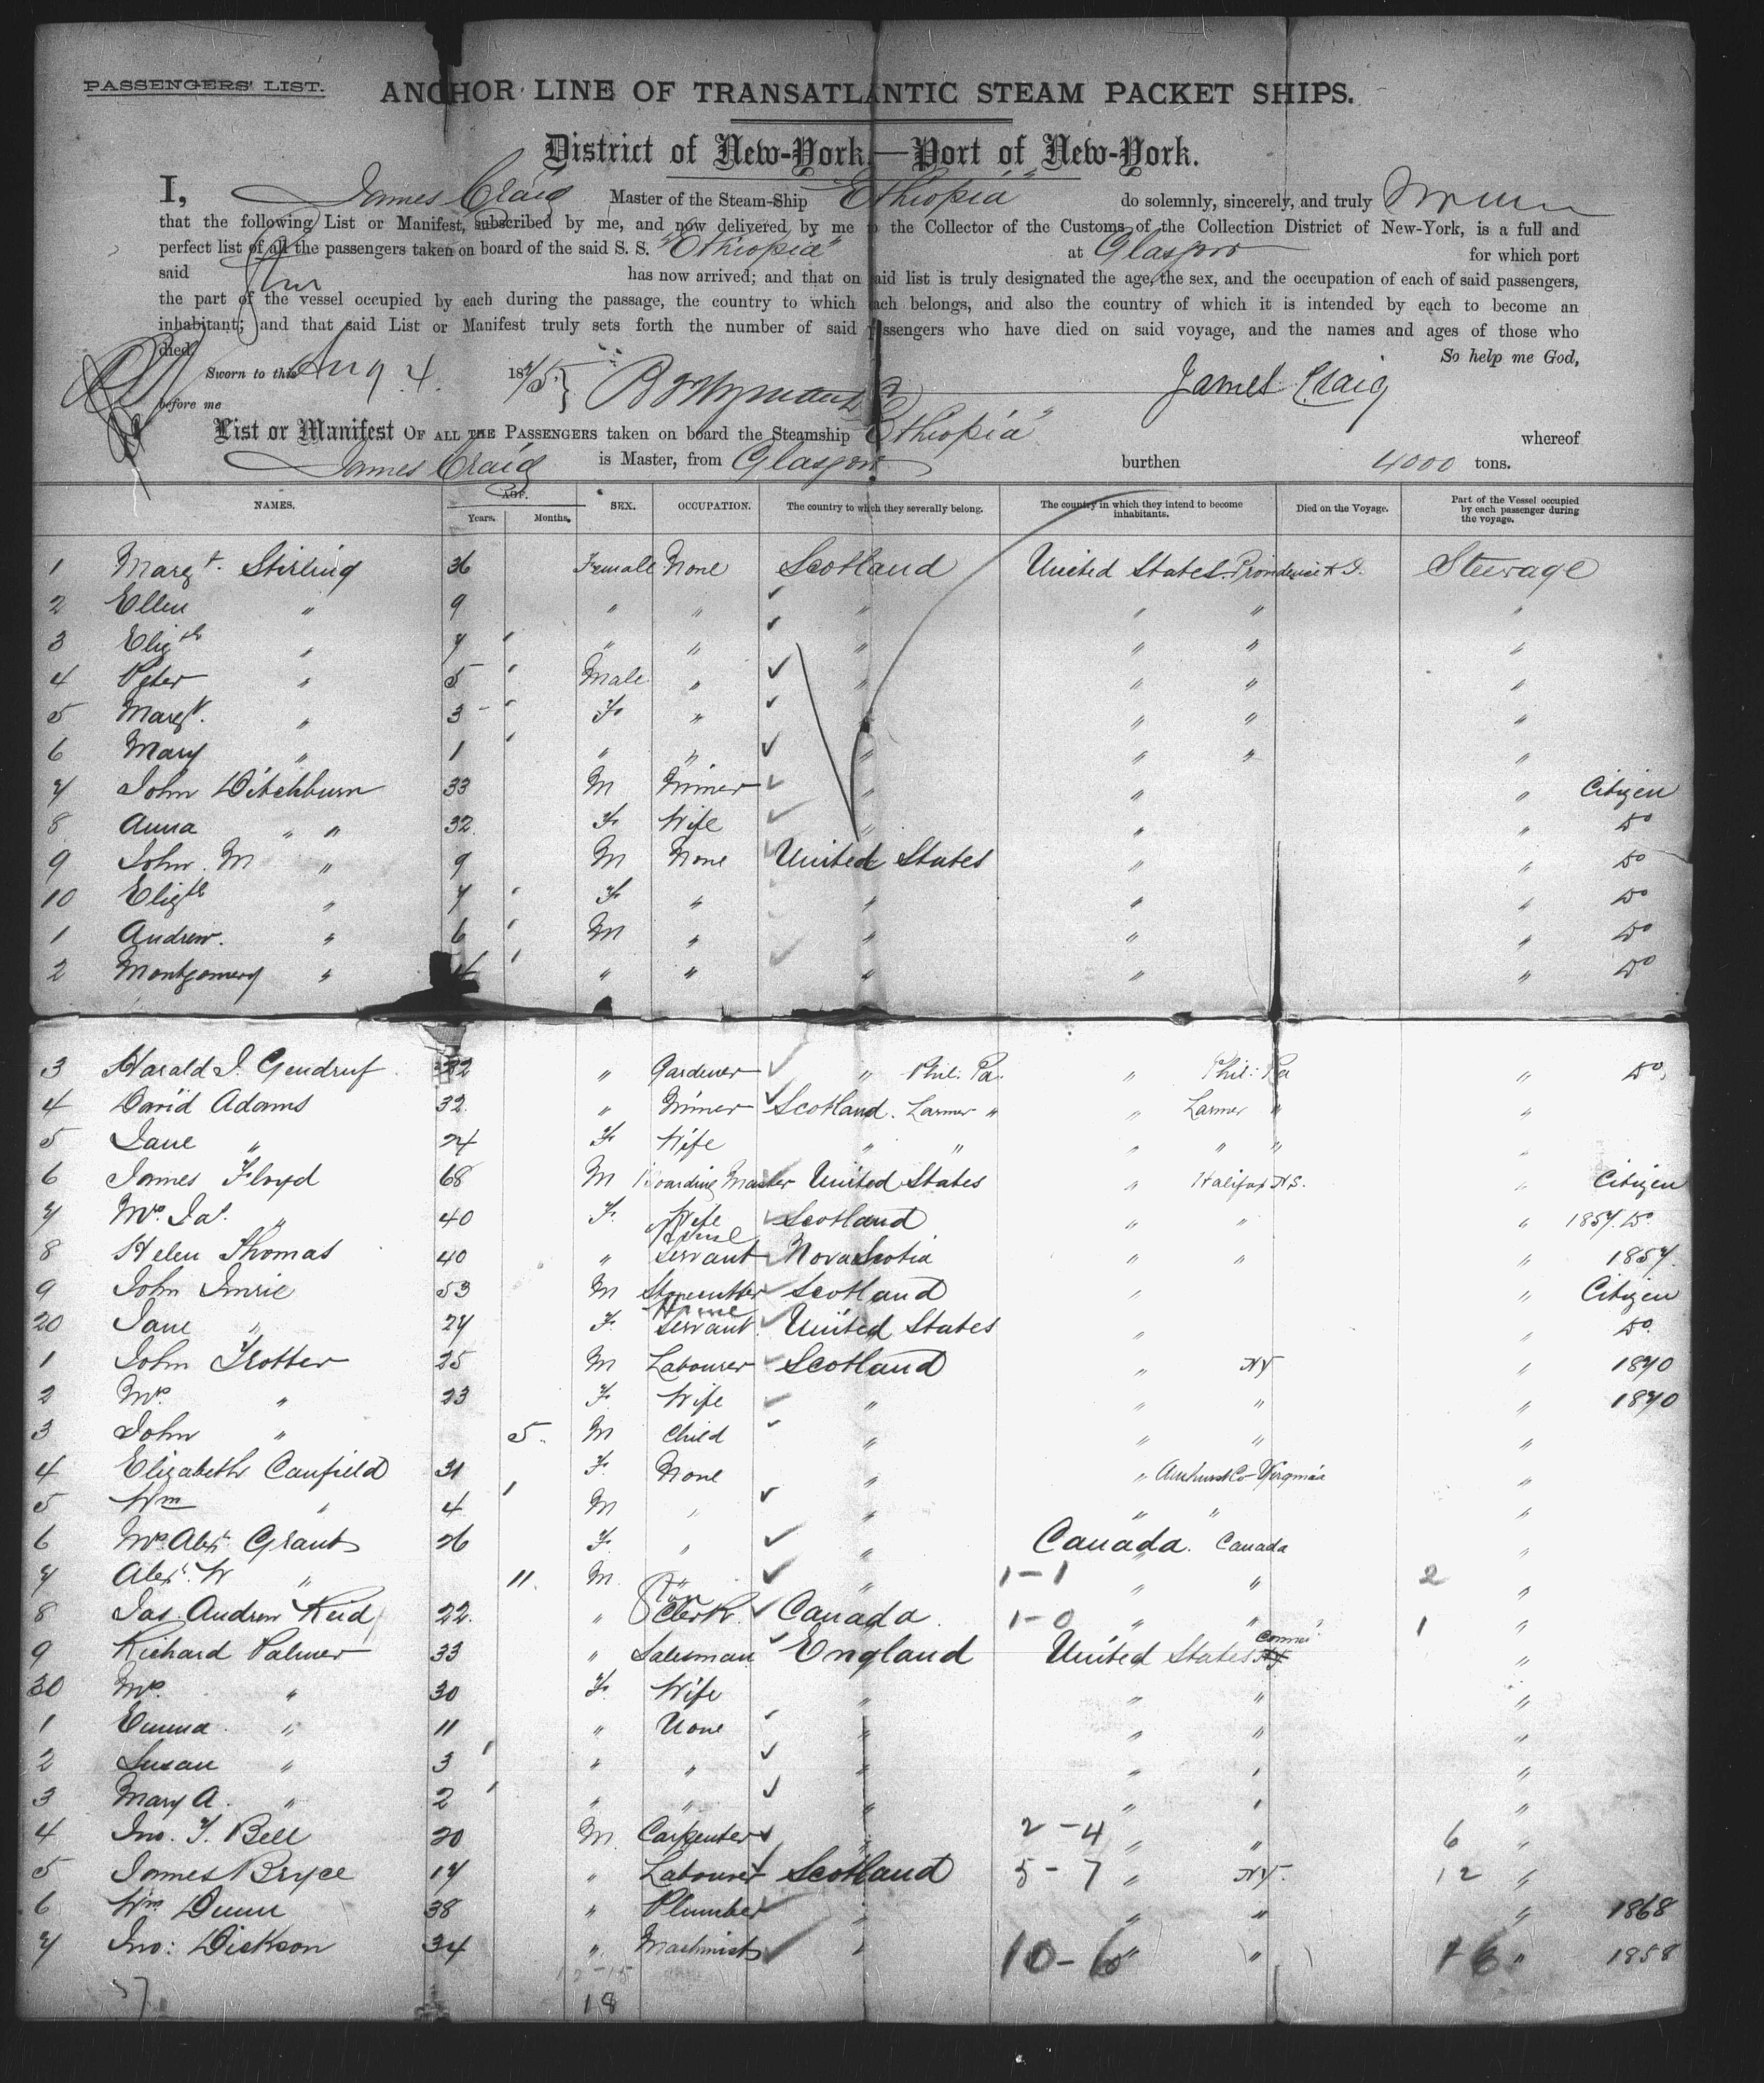 PASSENGERS' LIST.
ANCHOR LINE OF TRANSATLANTIC STEAM PACKET SHIPS.
District of New-York,—Port of New-York.
I, James Craig Master of the Steam-Ship "Ethiopia" do solemnly, sincerely, and truly
that the following List or Manifest, subscribed by me, and now delivered by me to the Collector of the Customs of the Collection District of New-York, is a full and
perfect list of all the passengers taken on board of the said S. S. "Ethiopia" at Glasgow for which port
said has now arrived; and that on said list is truly designated the age, the sex, and the occupation of each of said passengers,
the part of the vessel occupied by each during the passage, the country to which each belongs, and also the country of which it is intended by each to become an
inhabitant; and that said List or Manifest truly sets forth the number of said passengers who have died on said voyage, and the names and ages of those who
died. So help me God,
Sworn to this Aug 4. 1875. James Craig
before me
List or Manifest OF ALL THE PASSENGERS taken on board the Steamship "Ethiopia" whereof
James Craig is Master, from Glasgow burthen 4000 tons.
NAMES. AGE. Years. Months. SEX. OCCUPATION. The country to which they severally belong. The country in which they intend to become inhabitants. Died on the Voyage. Part of the Vessel occupied by each passenger during the voyage.
1 Margt. Stirling 36 Female None Scotland United States. Providence R I. Steerage
2 Ellen " 9 " " " " " "
3 Elizth " 7 " " " " " "
4 Peter " 5 Male " " " " "
5 Margt. " 3 F " " " " "
6 Mary " 1 " " " " " "
7 John Ditchburn 33 M Miner " " " Citizen
8 Anna " " 32 F Wife " " " Do
9 John. M " 9 M None United States " " Do
10 Elizth " 7 F " " " " Do
1 Andrew. " 6 M " " " " Do
2 Montgomery " " " " " " Do
3 Harald J. 32 " Gardener " Phil. Pa. " Phil: Pa " Do.
4 David Adams 32 " Miner Scotland. Larmer " " Larmer " "
5 Jane " 24 F Wife " " " " " "
6 James Floyd 68 M Boarding Master United States " Halifax NS. " Citizen
7 Mrs. Jas. " 40 F. Wife Scotland " " " 1857. Do.
8 Helen Thomas 40 " Servant Nova Scotia " " " 1857.
9 John Imrie 53 M Stonecutter Scotland " " Citizen
20 Jane " 27 F. Servant. United States " " Do.
1 John Trotter 25 M Labourer Scotland " NY " 1870
2 Mrs. " 23 F. Wife " " " " 1870
3 John " 5. M Child " " " "
4 Elizabeth Canfield 31 F. None " " Amhurst Co Virginia "
5 Wm " 4 M " " " " "
6 Mrs. Alexr Grant 26 F. " " Canada. Canada "
7 Alexr. W " 11. M. " " 1-1 " " 2 "
8 Jas. Andrew Reid 22. " Clerk. Canada 1-0 " " 1 "
9 Richard Palmer 33 " Salesman England United States "
30 Mrs. " 30 F. Wife " " " "
1 Emma. " 11 " None " " " "
2 Susan " 3 " " " " " "
3 Mary A. " 2 " " " " " "
4 Jno. T. Bell 20 M. Carpenter " 2-4 " " 6 "
5 James Bryce 17 " Labourer Scotland 5-7 " NY. 12 "
6 Wm Dunn 38 " Plumber " " " " 1868
7 Jno: Dickson 34 " Machinist " 10-6 " " 16 " 1858
37 12-15
18